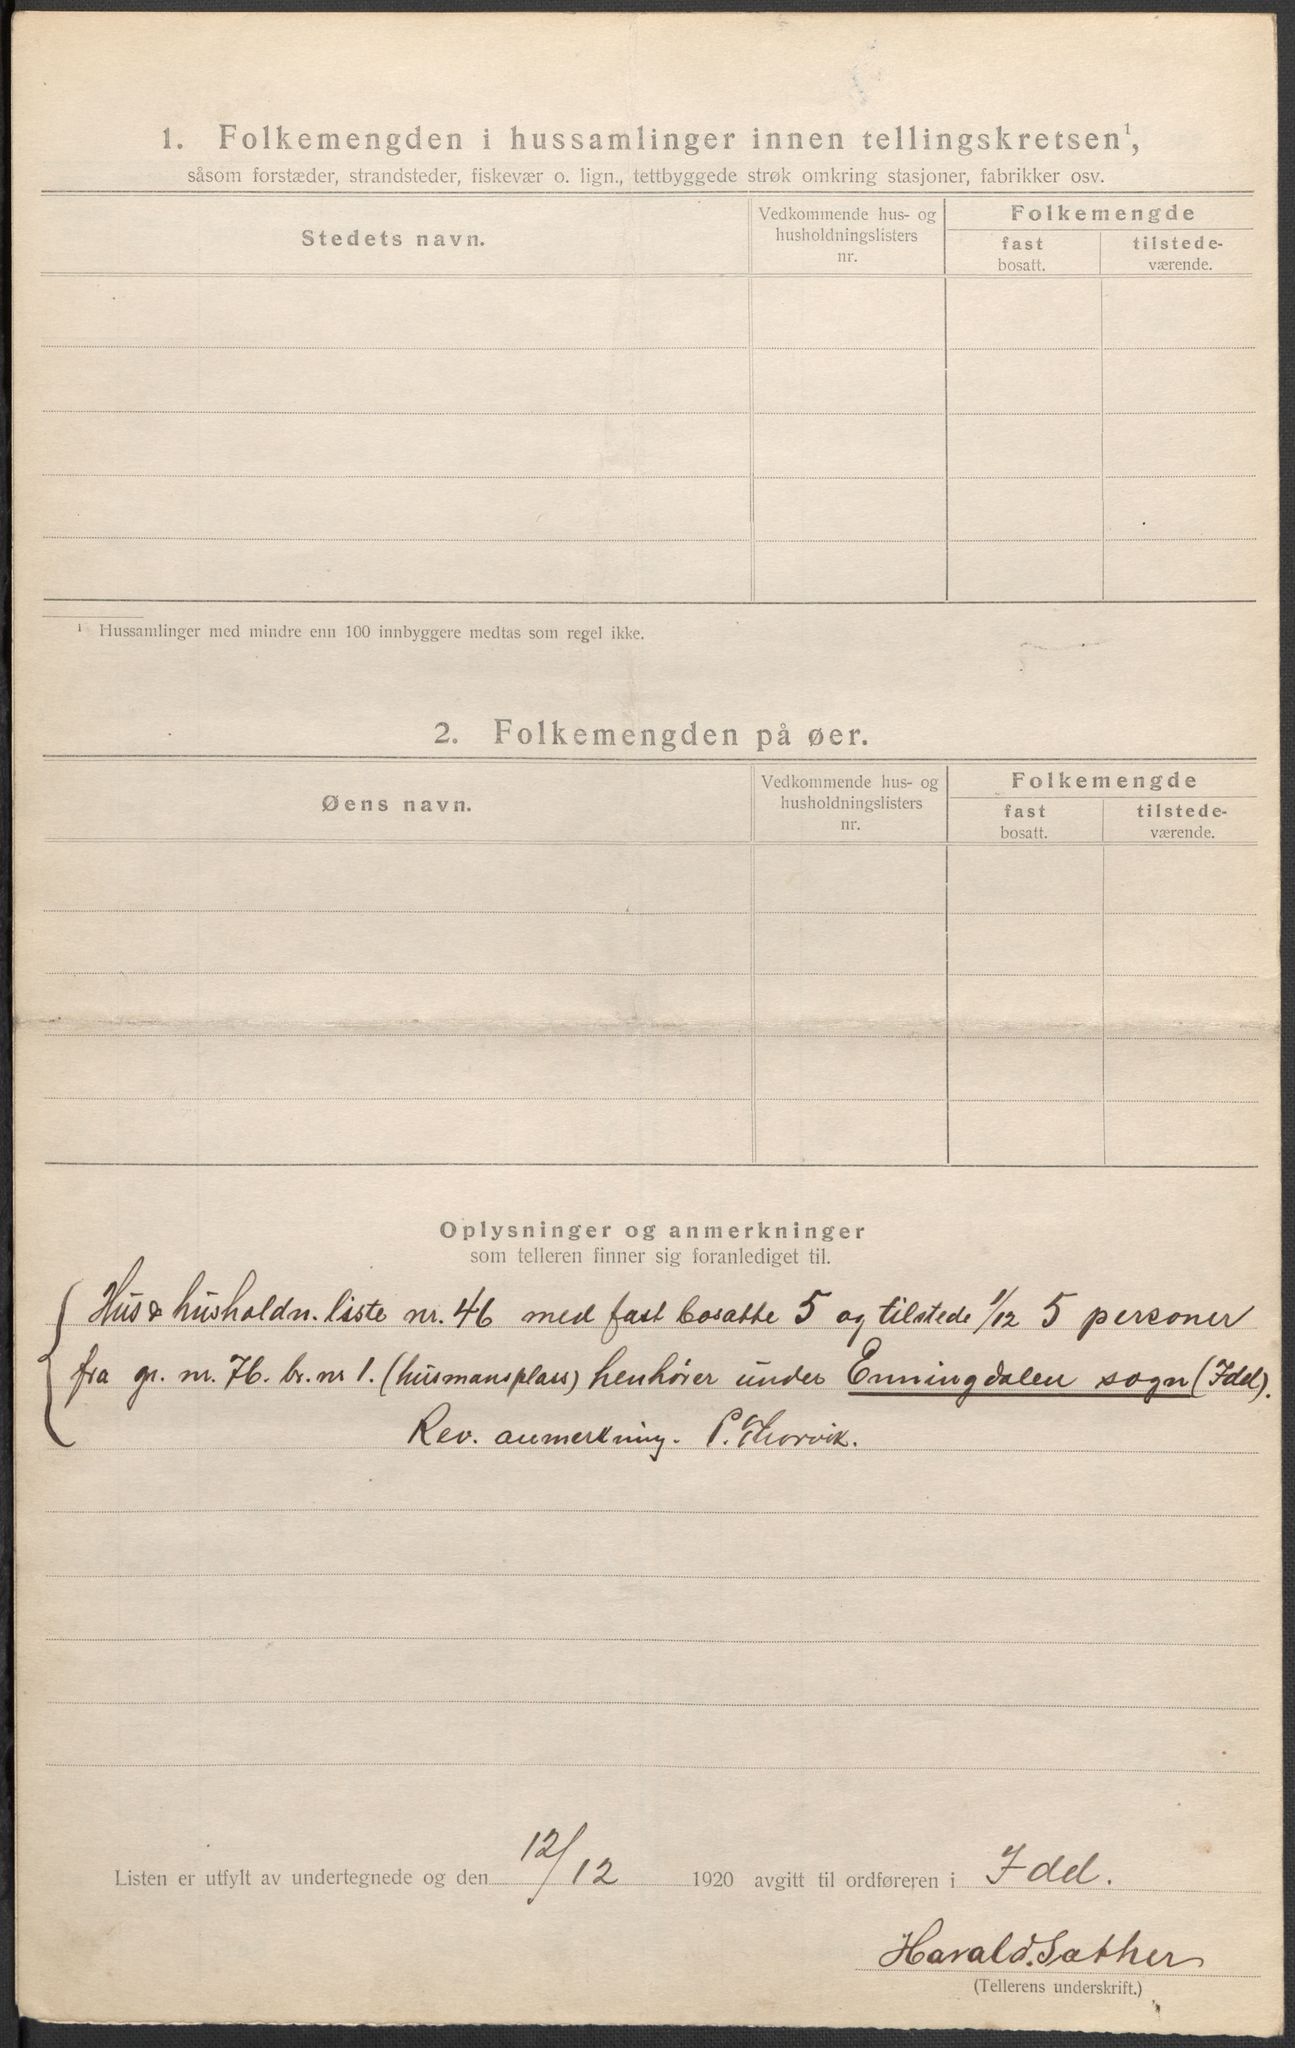 1. Folkemengden i hussamlinger innen tellingskretsen¹,
såsom forstæder, strandsteder, fiskevær o. lign., tettbyggede strøk omkring stasjoner, fabrikker osv.
Stedets navn.
Vedkommende hus- og
husholdningslisters
nr.
Folkemengde
fast
bosatt.
tilstede-
værende.
¹ Hussamlinger med mindre enn 100 innbyggere medtas som regel ikke.
2. Folkemengden på øer.
Øens navn.
Vedkommende hus- og
husholdningslisters
nr.
Folkemengde
fast
bosatt.
tilstede-
værende.
Oplysninger og anmerkninger
som telleren finner sig foranlediget til.
Hus & husholdn. liste nr. 46 med fast bosatte 5 og tilstede 1/12 5 personer
fra gr. nr. 76. br. nr 1. (husmansplass) henhører under Enningdalen sogn (Idd).
Rev. anmerkning. P. Thorvik.
Listen er utfylt av undertegnede og den 12/12 1920 avgitt til ordføreren i Idd.
Harald. Sæther
(Tellerens underskrift.)